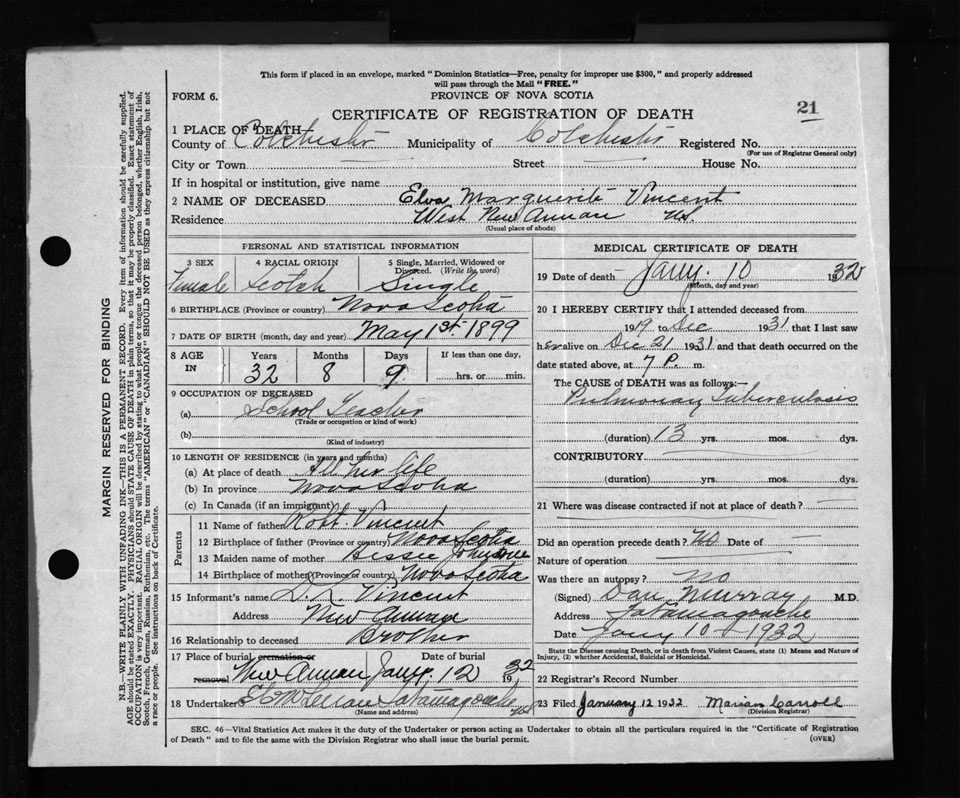 This form if placed in an envelope, marked "Dominion Statistics—Free, penalty for improper use $300," and properly addressed
will pass through the Mail "FREE."
FORM 6.
PROVINCE OF NOVA SCOTIA
21
CERTIFICATE OF REGISTRATION OF DEATH
1 PLACE OF DEATH
County of Colchester Municipality of Colchester Registered No.
(For use of Registrar General only)
City or Town Street House No.
If in hospital or institution, give name
2 NAME OF DECEASED Elva Marguerite Vincent
Residence West New Annan N.S.
(Usual place of abode)
PERSONAL AND STATISTICAL INFORMATION
3 SEX 4 RACIAL ORIGIN 5 Single, Married, Widowed or
Divorced. (Write the word)
Female Scotch Single
6 BIRTHPLACE (Province or country) Nova Scotia
7 DATE OF BIRTH (month, day and year) May 1st. 1899
8 AGE IN Years Months Days If less than one day,
32 8 9 hrs. or min.
9 OCCUPATION OF DECEASED
(a) School Teacher
(Trade or occupation or kind of work)
(b)
(Kind of industry)
10 LENGTH OF RESIDENCE (in years and months)
(a) At place of death All her life
(b) In province Nova Scotia
(c) In Canada (if an immigrant)
Parents
11 Name of father Robt. Vincent
12 Birthplace of father (Province or country) Nova Scotia
13 Maiden name of mother Bessie Johnstone
14 Birthplace of mother (Province or country) Nova Scotia
15 Informant's name D. L. Vincent
Address New Annan
16 Relationship to deceased Brother
17 Place of burial cremation or Date of burial
removal New Annan Jany. 12 1932
18 Undertaker McLellan Tatamagouche N.S.
(Name and address)
MEDICAL CERTIFICATE OF DEATH
19 Date of death Jany. 10 1932
(Month, day and year)
20 I HEREBY CERTIFY that I attended deceased from
1919 to Dec 1931 that I last saw
her alive on Dec 21 1931 and that death occurred on the
date stated above, at 7 P. m.
The CAUSE OF DEATH was as follows:—
Pulmonary Tuberculosis
(duration) 13 yrs. mos. dys.
CONTRIBUTORY
(duration) yrs. mos. dys.
21 Where was disease contracted if not at place of death?
Did an operation precede death? No Date of —
Nature of operation
Was there an autopsy? no
(Signed) Dan Murray M.D.
Address Tatamagouche
Date Jany 10 1932
State the Disease causing Death, or in death from Violent Causes, state (1) Means and Nature of
Injury, (2) whether Accidental, Suicidal or Homicidal.
22 Registrar's Record Number
23 Filed January 12 1932 Marian Carroll
(Division Registrar)
SEC. 46—Vital Statistics Act makes it the duty of the Undertaker or person acting as Undertaker to obtain all the particulars required in the "Certificate of Registration
of Death" and to file the same with the Division Registrar who shall issue the burial permit.
(OVER)
MARGIN RESERVED FOR BINDING
N.B.—WRITE PLAINLY WITH UNFADING INK—THIS IS A PERMANENT RECORD. Every item of information should be carefully supplied.
AGE should be stated EXACTLY. PHYSICIANS should STATE CAUSE OF DEATH in plain terms, so that it may be properly classified. Exact statement of
OCCUPATION is very important. RACIAL ORIGIN will be described by stating to what people or tongue the deceased person belonged, whether English, Irish,
Scotch, French, German, Russian, Ruthenian, etc. The terms "AMERICAN" or "CANADIAN" SHOULD NOT BE USED as they express citizenship but not
a race or people. See instructions on back of Certificate.